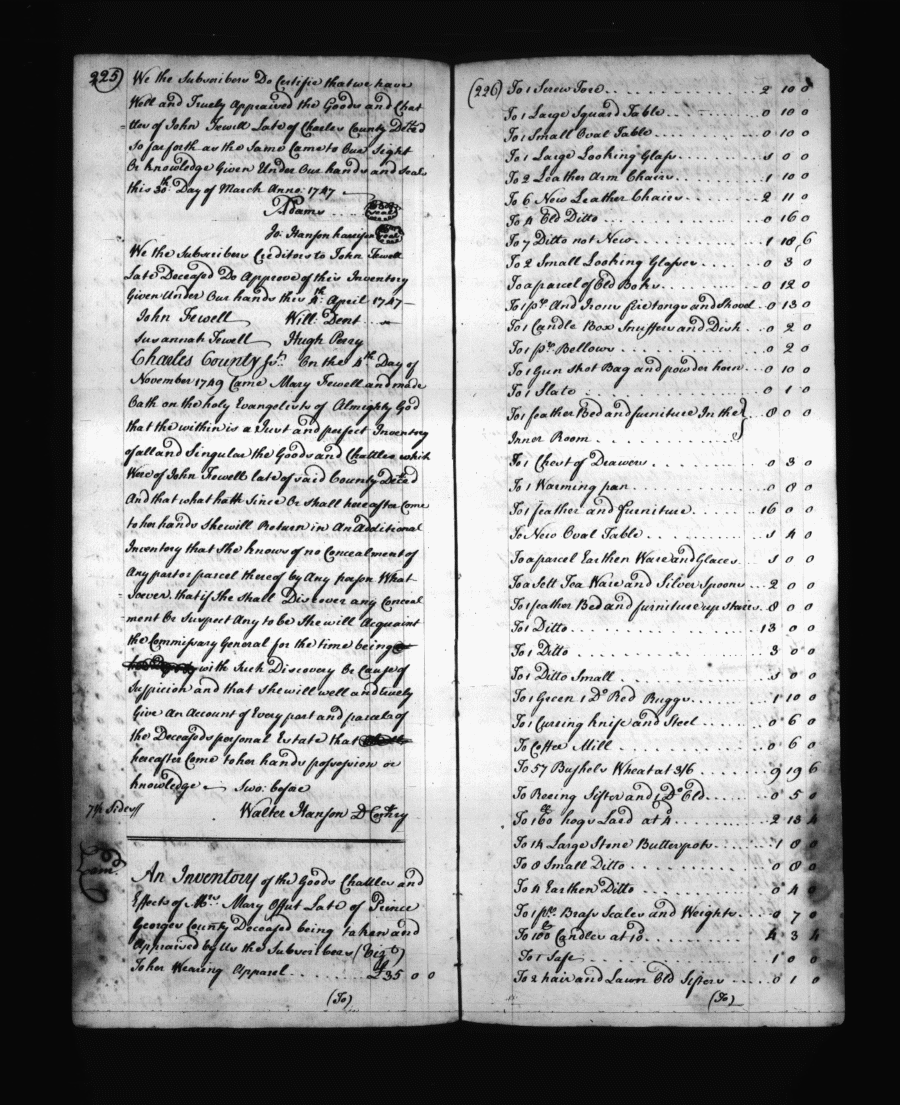 225)
We the Subscribers Do Certifie that we have
Well and Truely Appraised the Goods and Chat
tles of John Fewell Late of Charles County Deced
So far forth as the Same Came to Our Sight
Or knowledge Given Under Our hands and Seals
this 30th Day of March Anno: 1747
Adams .... seal
Jo: Hanson harrison seal
We the Subscribers Creditors to John Fewell
Late Deceased Do Approve of this Inventory
Given Under Our hands this 4th April 1747
John Fewell Will: Dent
Susannah Fewell Hugh Perry
Charles County Sst. On the 4th Day of
November 1749 Came Mary Fewell and made
Oath on the holy Evangelists of Almighty God
that the within is a Just and perfect Inventory
of all and Singular the Goods and Chattles which
Were of John Fewell late of said County Deced
And that what hath Since Or Shall hereafter Come
to her hands She will Return in An Additional
Inventory that She knows of no Concealment of
Any part or parcel thereof by Any person What
Soever. that if She Shall Discover any Conceal
ment Or Suspect Any to be She will Acquaint
the Commissary General for the time being
with Such Discovery Or Cause of
Suspicion and that She will well and truely
Give An Account of Every part and parcel of
the Deceaseds personal Estate that
hereafter Come to her hands possession or
knowledge Swo: before
7 Sides//
Walter Hanson D Comry
Exam.d
An Inventory of the Goods Chattles and
Effects of Mrs. Mary Offut Late of Prince
Georges County Deceased being taken and
Appraised by Us the Subscribers (Vizt)
To her Wearing Apparel ........ £35 0 0
(To)
(226)
To 1 Screw Tore ........ 2 10 0
To 1 Large Squard Table ........ 0 10 0
To 1 Small Oval Table ........ 0 10 0
To 1 Large Looking Glass ........ 1 0 0
To 2 Leather Arm Chairs ........ 1 10 0
To 6 New Leather Chairs ........ 2 11 0
To 4 Old Ditto ........ 0 16 0
To 7 Ditto not New ........ 1 18 6
To 2 Small Looking Glasses ........ 0 3 0
To a parcel of Old Boks ........ 0 12 0
To 1 pr. And Irons fire tongs and Shovel .. 0 13 0
To 1 Candle Box Snuffers and Dish ... 0 2 0
To 1 pr. Bellows ........ 0 2 0
To 1 Gun Shot Bag and powder horn ... 0 10 0
To 1 Slate ........ 0 1 0
To 1 feather Bed and furniture In the } .. 8 0 0
Inner Room ........
To 1 Chest of Drawers ........ 0 3 0
To 1 Warming pan ........ 0 8 0
To 1 feather and furniture ........ 16 0 0
To New Oval Table ........ 1 4 0
To a parcel Earthen Ware and Glaces ... 1 0 0
To a Sett Tea Ware and Silver Spoons ... 2 0 0
To 1 feather Bed and furniture up stairs .. 8 0 0
To 1 Ditto ........ 13 0 0
To 1 Ditto ........ 3 0 0
To 1 Ditto Small ........ 1 0 0
To 1 Green 1 Do Red Ruggs ........ 1 10 0
To 1 Curring knife and Steel ........ 0 6 0
To Coffee Mill ........ 0 6 0
To 57 Bushels Wheat at 3/6 ........ 9 19 6
To Beeing Sifter and 1 Do Old ........ 0 5 0
To 160 hogs Lard at 4 ........ 2 13 4
To 14 Large Stone Butterpots ........ 1 8 0
To 8 Small Ditto ........ 0 8 0
To 4 Earthen Ditto ........ 0 4 0
To 1 pr. Brass Scales and Weights ........ 0 7 0
To 100 Candles at 10 ........ 4 3 4
To 1 Safe ........ 1 0 0
To 2 hair and Lawn Old Sifters ........ 0 1 0
(To)